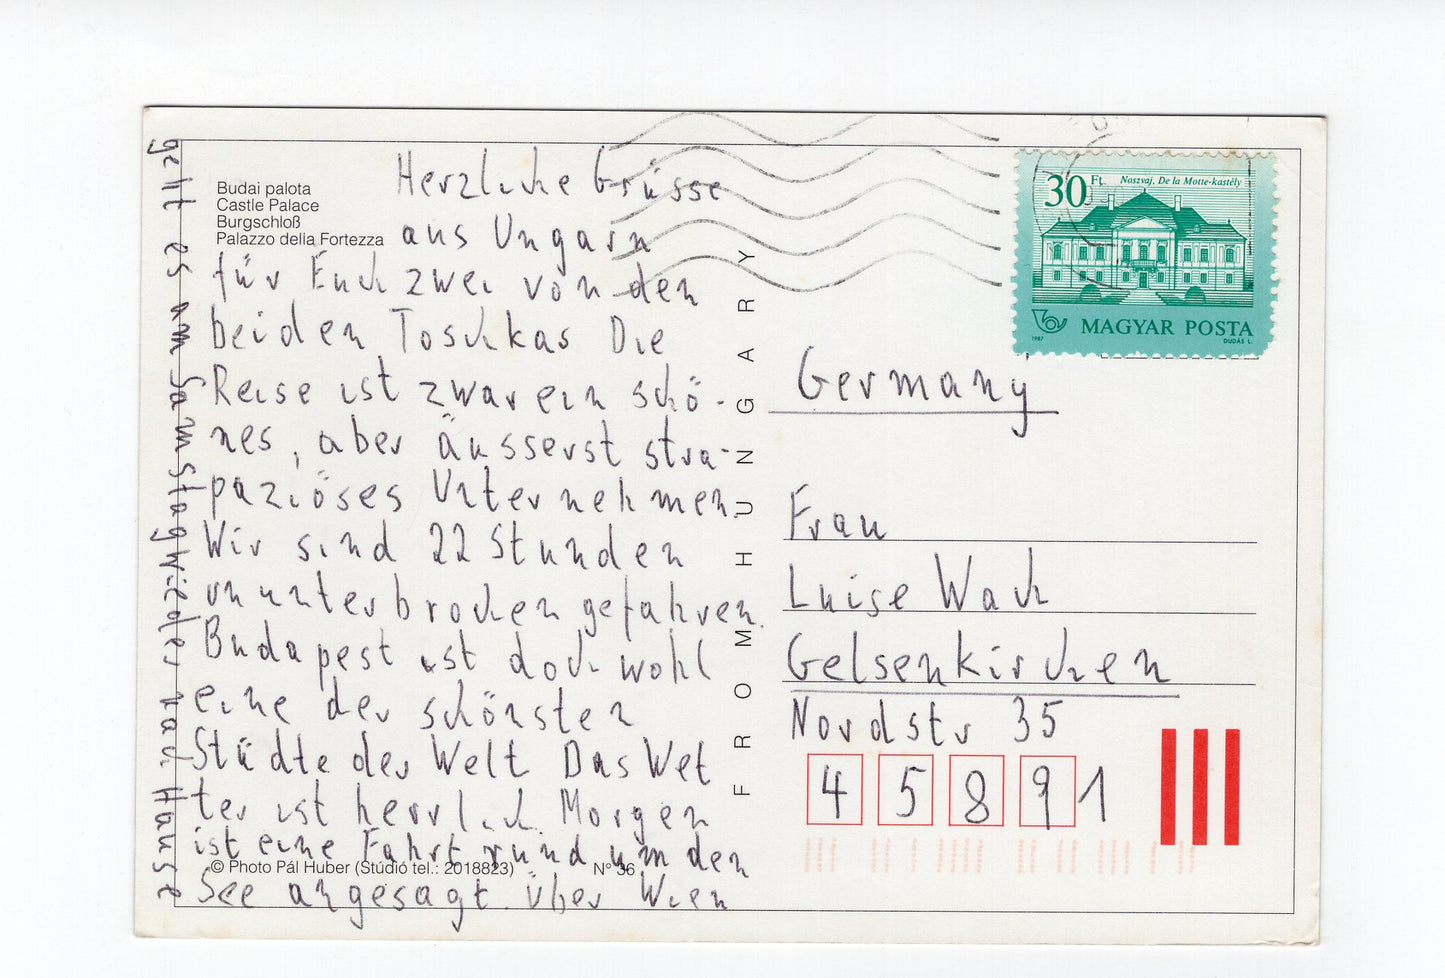 Budai palota
Castle Palace
Burgschloß
Palazzo della Fortezza
Herzliche Grüsse
aus Ungarn
für Euch zwei von den
beiden Toschkas Die
Reise ist zwar ein schö-
nes, aber äusserst stra-
paziöses Unternehmen.
Wir sind 22 Stunden
ununterbrochen gefahren.
Budapest ist doch wohl
eine der schönsten
Städte der Welt Das Wet
ter ist herrlich. Morgen
ist eine Fahrt rund um den
See angesagt. Über Wien
geht es am Samstag wieder nach Hause
© Photo Pál Huber (Stúdió tel.: 2018823) N° 36
FROM HUNGARY
30 Ft
Noszvaj, De la Motte-kastély
MAGYAR POSTA
1987 DUDÁS L.
Germany
Frau
Luise Wach
Gelsenkirchen
Nordstr 35
45891